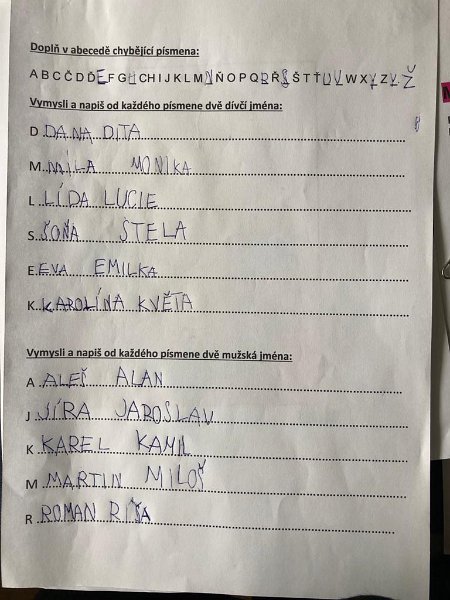 Doplň v abecedě chybějící písmena:
A B C Č D Ď E F G H CH I J K L M N Ň O P Q R Ř S Š T Ť U V W X Y Z Ž
Vymysli a napiš od každého písmene dvě dívčí jména:
D DANA DITA
M MÍLA MONIKA
L LÍDA LUCIE
S SOŇA STELA
E EVA EMILKA
K KAROLÍNA KVĚTA
Vymysli a napiš od každého písmene dvě mužská jména:
A ALEŠ ALAN
J JÍRA JAROSLAV
K KAREL KAMIL
M MARTIN MILOŠ
R ROMAN RÍŠA